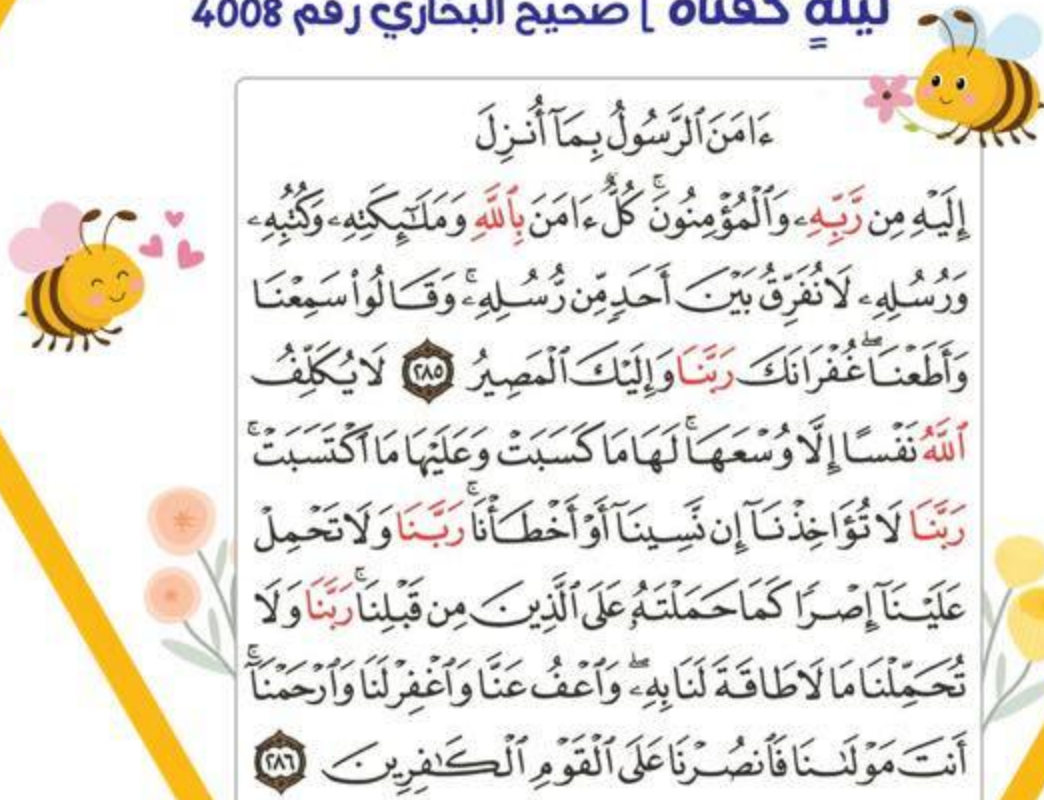 ليلةٍ كفتاه ] صحيح البخاري رقم 4008
ءَامَنَ ٱلرَّسُولُ بِمَآ أُنزِلَ
إِلَيْهِ مِن رَّبِّهِۦ وَٱلْمُؤْمِنُونَۚ كُلٌّ ءَامَنَ بِٱللَّهِ وَمَلَٰٓئِكَتِهِۦ وَكُتُبِهِۦ
وَرُسُلِهِۦ لَا نُفَرِّقُ بَيْنَ أَحَدٍ مِّن رُّسُلِهِۦۚ وَقَالُوا۟ سَمِعْنَا
وَأَطَعْنَاۖ غُفْرَانَكَ رَبَّنَا وَإِلَيْكَ ٱلْمَصِيرُ ٢٨٥ لَا يُكَلِّفُ
ٱللَّهُ نَفْسًا إِلَّا وُسْعَهَاۚ لَهَا مَا كَسَبَتْ وَعَلَيْهَا مَا ٱكْتَسَبَتْۚ
رَبَّنَا لَا تُؤَاخِذْنَآ إِن نَّسِينَآ أَوْ أَخْطَأْنَاۚ رَبَّنَا وَلَا تَحْمِلْ
عَلَيْنَآ إِصْرًا كَمَا حَمَلْتَهُۥ عَلَى ٱلَّذِينَ مِن قَبْلِنَاۚ رَبَّنَا وَلَا
تُحَمِّلْنَا مَا لَا طَاقَةَ لَنَا بِهِۦۖ وَٱعْفُ عَنَّا وَٱغْفِرْ لَنَا وَٱرْحَمْنَآۚ
أَنتَ مَوْلَىٰنَا فَٱنصُرْنَا عَلَى ٱلْقَوْمِ ٱلْكَٰفِرِينَ ٢٨٦